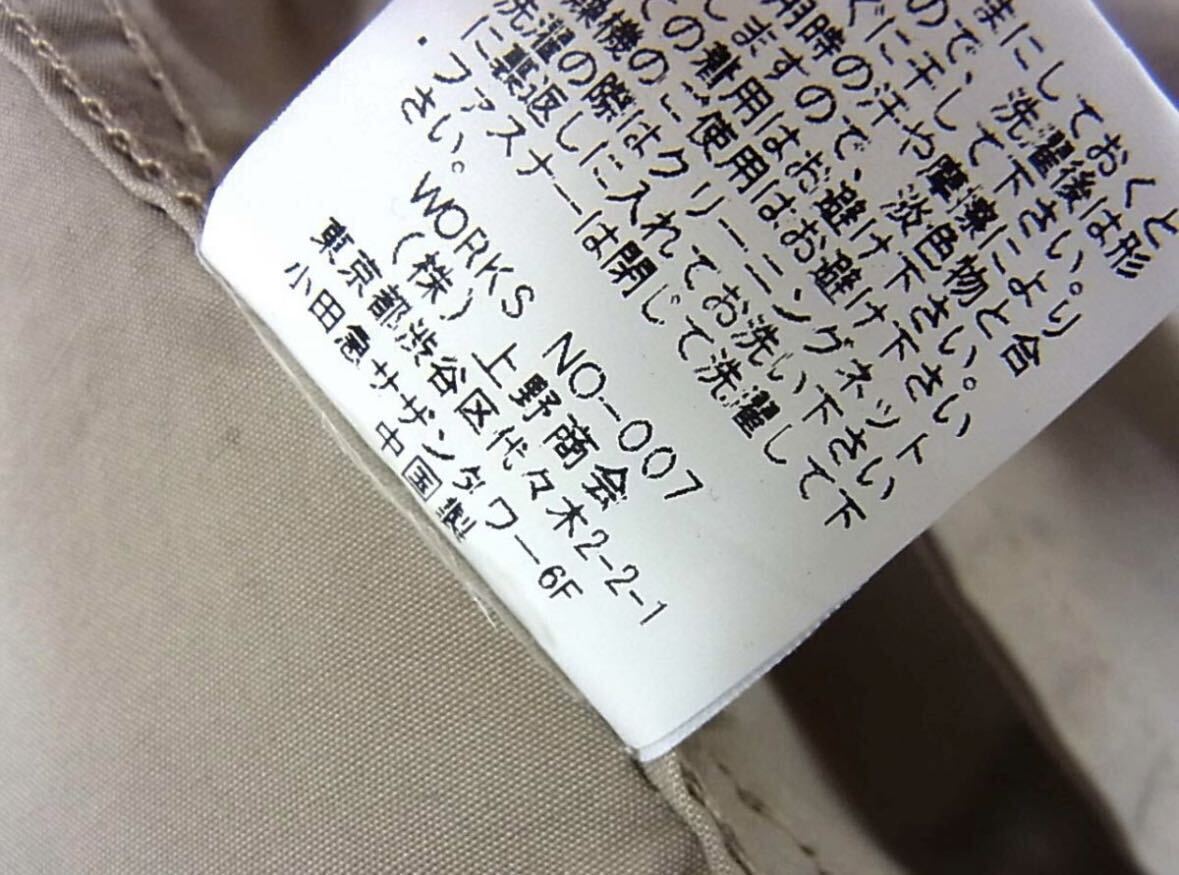 まにしておくと
ので、洗濯後は形
ぐに干して下さい。
用時の汗や摩擦により
しますので、淡色物と合
ての着用はお避け下さい。
燥機のご使用はお避け下さい
洗濯の際はクリーニングネット
に裏返しに入れてお洗い下さい
・ファスナーは閉じて洗濯して下
さい。
WORKS NO-007
(株) 上野商会
東京都渋谷区代々木2-2-1
小田急サザンタワー6F
中国製